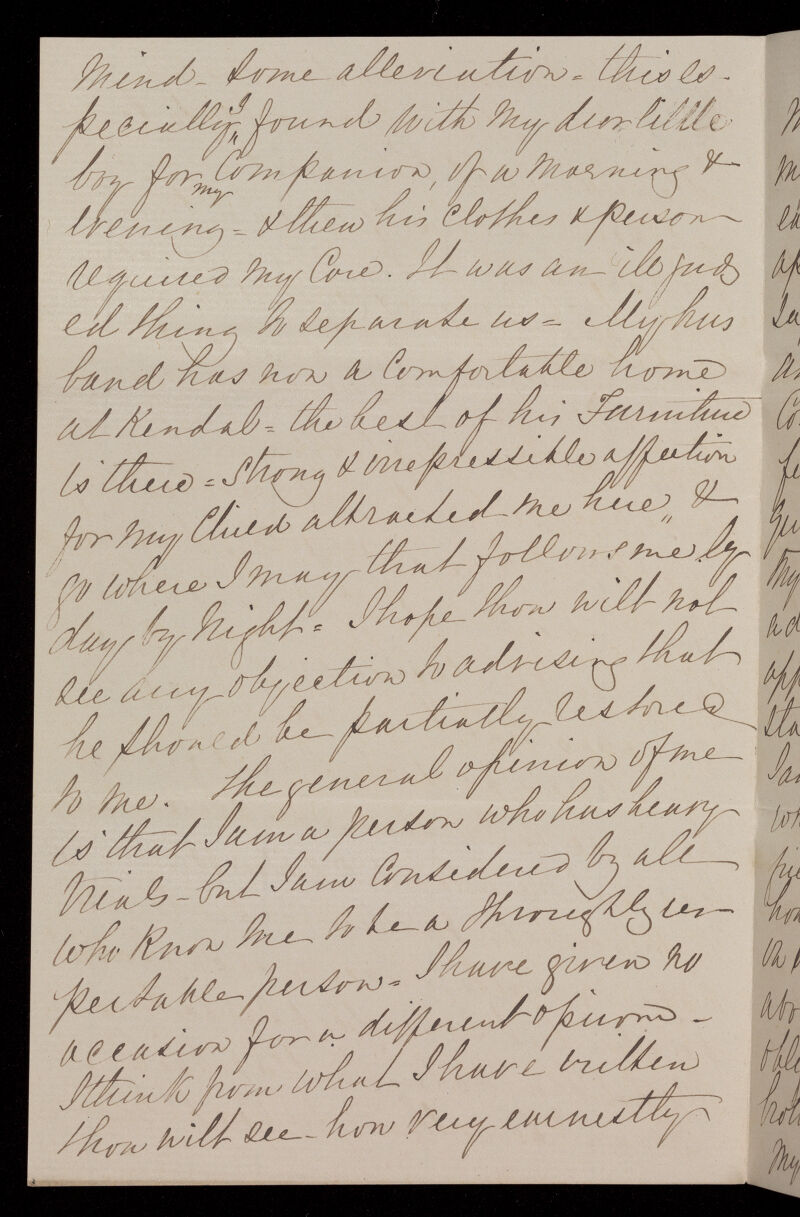 Mind - some alleviation = this es-
pecially I found with my dear little
boy for my Companion, of a morning &
evening = & then his clothes & person
required my Care. It was an ill judg
ed thing to separate us = My hus
band has now a Comfortable home
at Kendal = the best of his Furniture
is there = strong & irrepressible affection
for my Child attracted me here, &
go where I may that follows me by
day by Night = I hope thou wilt not
see any objection to advising that
he should be partially restored
to me. The general opinion of me
is that I am a person who has heavy
trials - but I am Considered by all
who know me to be a throughly res
pectable person = I have given no
occasion for a different opinion -
I think from what I have written
thou wilt see - how very earnestly